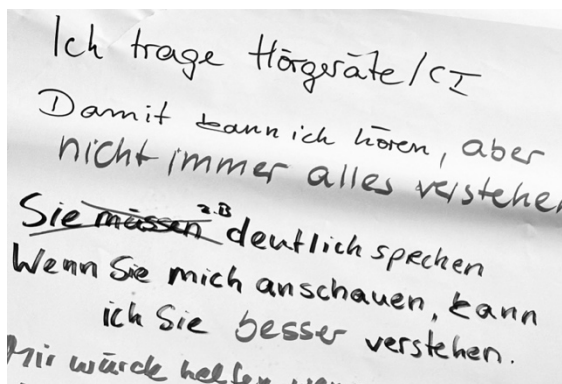 Ich trage Hörgeräte/CI
Damit kann ich hören, aber
nicht immer alles verstehen
Sie müssen z.B deutlich spechen
Wenn Sie mich anschauen, kann
ich Sie besser verstehen.
Mir würde helfen